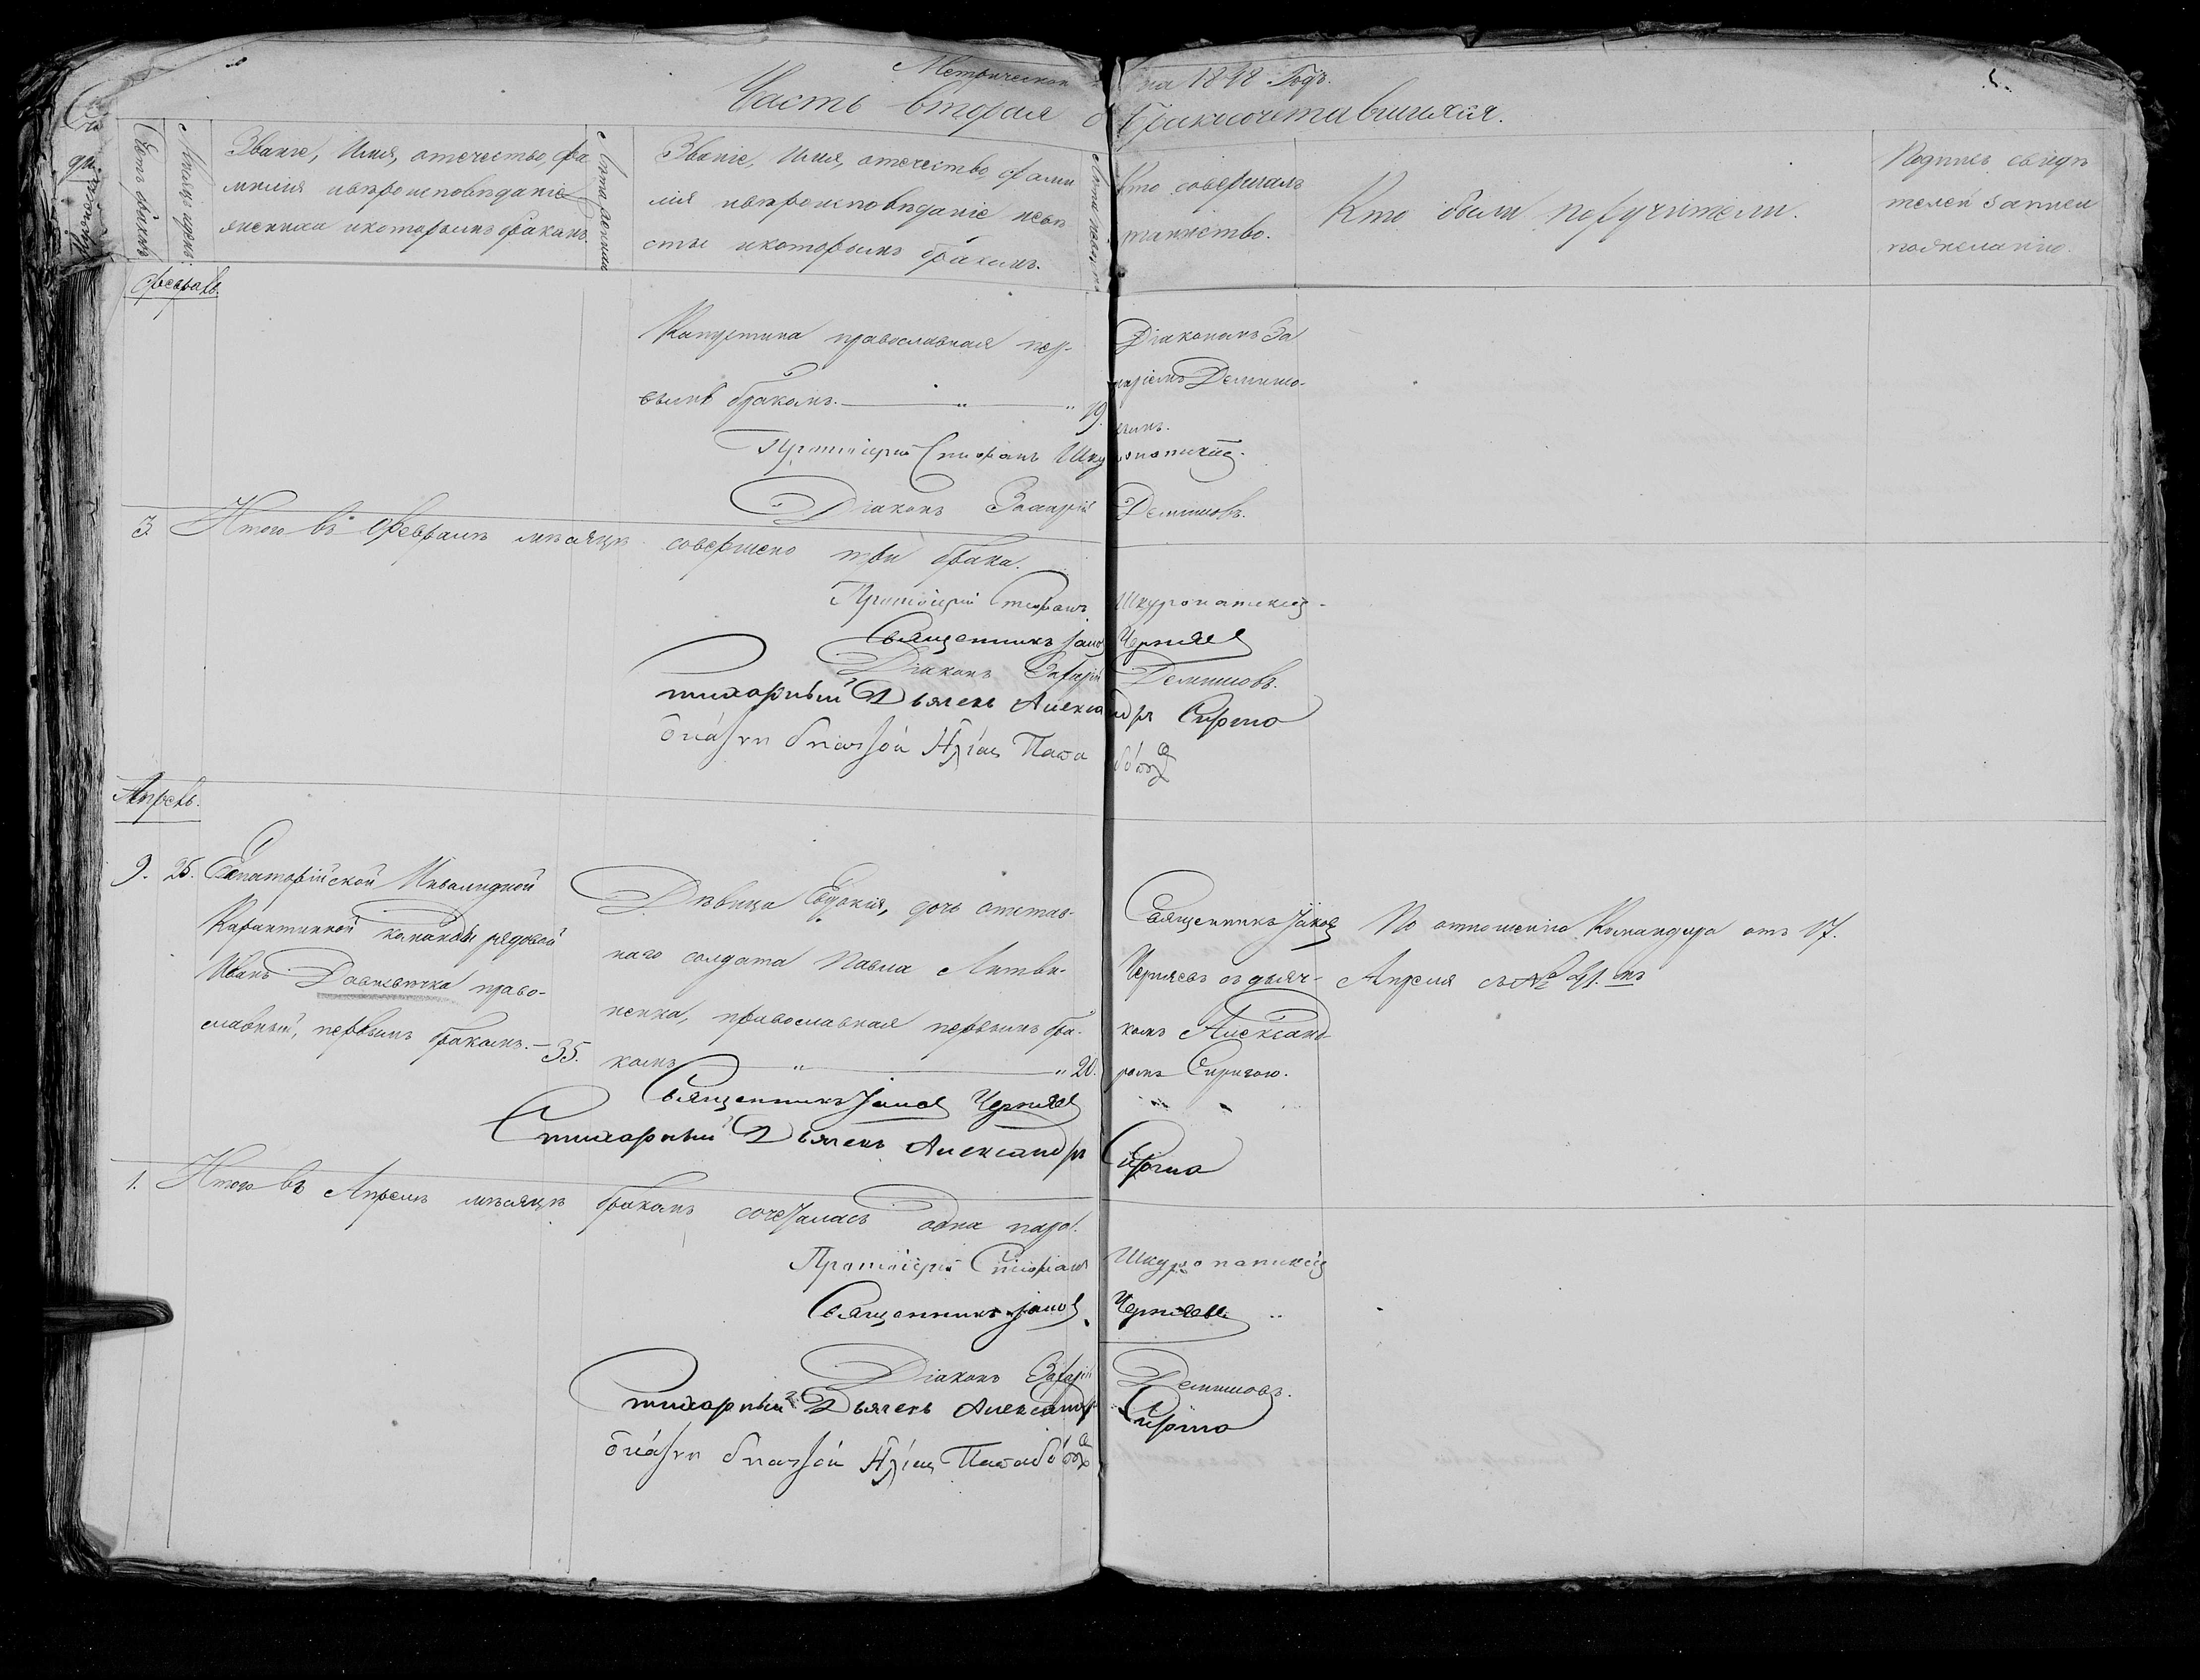 Метрической на 1848 Годъ.
Часть вторая о бракосочетавшихся.
Счетъ браковъ
Мѣсяцъ и день
Званіе, Имя, отечество, фа
милія и вѣроисповѣданіе
жениха и которымъ бракомъ.
Лѣта жениха
Званіе, Имя, отечество, фами
лія и вѣроисповѣданіе невѣ
сты и которымъ бракомъ.
Лѣта невѣсты
Кто совершалъ
таинство.
Кто были поручители.
Подпись свидѣ
телей записи
по желанію.
Февраль.
Капустина православная пер-
вымъ бракомъ. 19.
Діакономъ За
харіемъ Демишо-
вымъ.
Протоіерей Стефанъ Шкуропатскій.
Діаконъ Захарій Демишовъ.
3. Итого въ Февралѣ мѣсяцѣ совершено три брака.
Протоіерей Стефанъ Шкуропатскій
Священникъ Іаковъ Черняев
Діаконъ Захарій Демишовъ.
тихарный Дьячекъ Александръ Сирго
Апрель.
9. 25. Евпаторійской Инвалидной
Карантинной команды рядовой
Иванъ право-
славный, первымъ бракомъ. — 35.
Дѣвица Евдокія, дочь отстав-
наго солдата Павла Литви-
ненка, православная первымъ бра-
комъ 20.
Священникъ Іаковъ
Черняевъ съ дьяч-
комъ Александ
ромъ Сиргою.
По отношенію Командира отъ 17.
Апреля за № 41. мъ
Священникъ Іаков Черняев
Стихарный Дьячекъ Александръ Сирга
1. Итого въ Апрелѣ мѣсяцѣ бракомъ сочеталась одна пара.
Протоіерей Стефанъ Шкуропатскій
Священникъ Іаков Черняев
Діаконъ Захарій Демишовъ.
Стихарный Дьячекъ Александръ Сирго